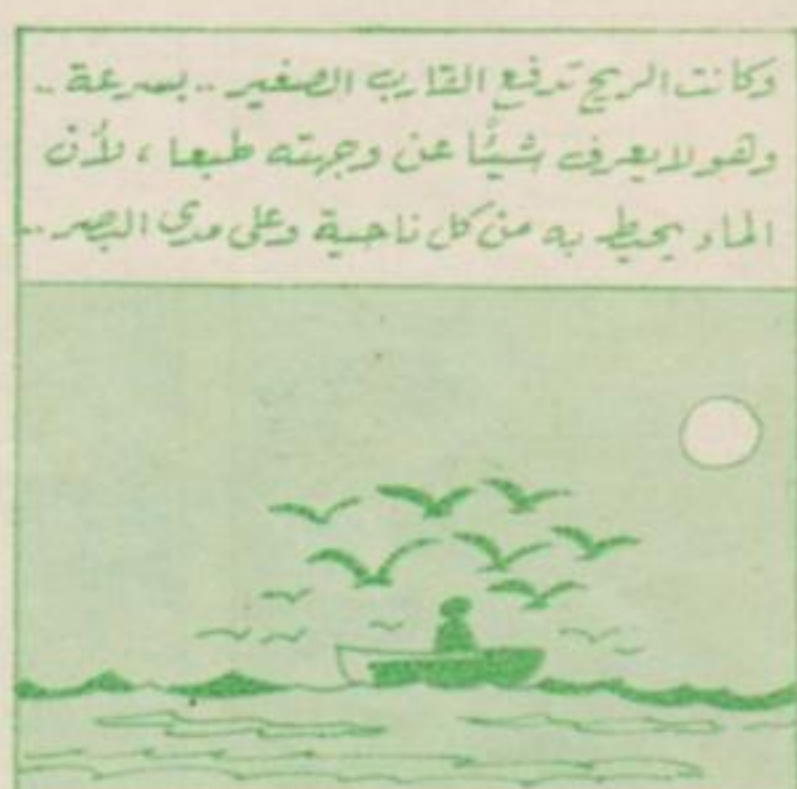 وكانت الريح تدفع القارب الصغير .. بسرعة ..
وهو لا يعرف شيئًا عن وجهته طبعا ، لأن
الماء يحيط به من كل ناحية وعلى مدى البصر ..